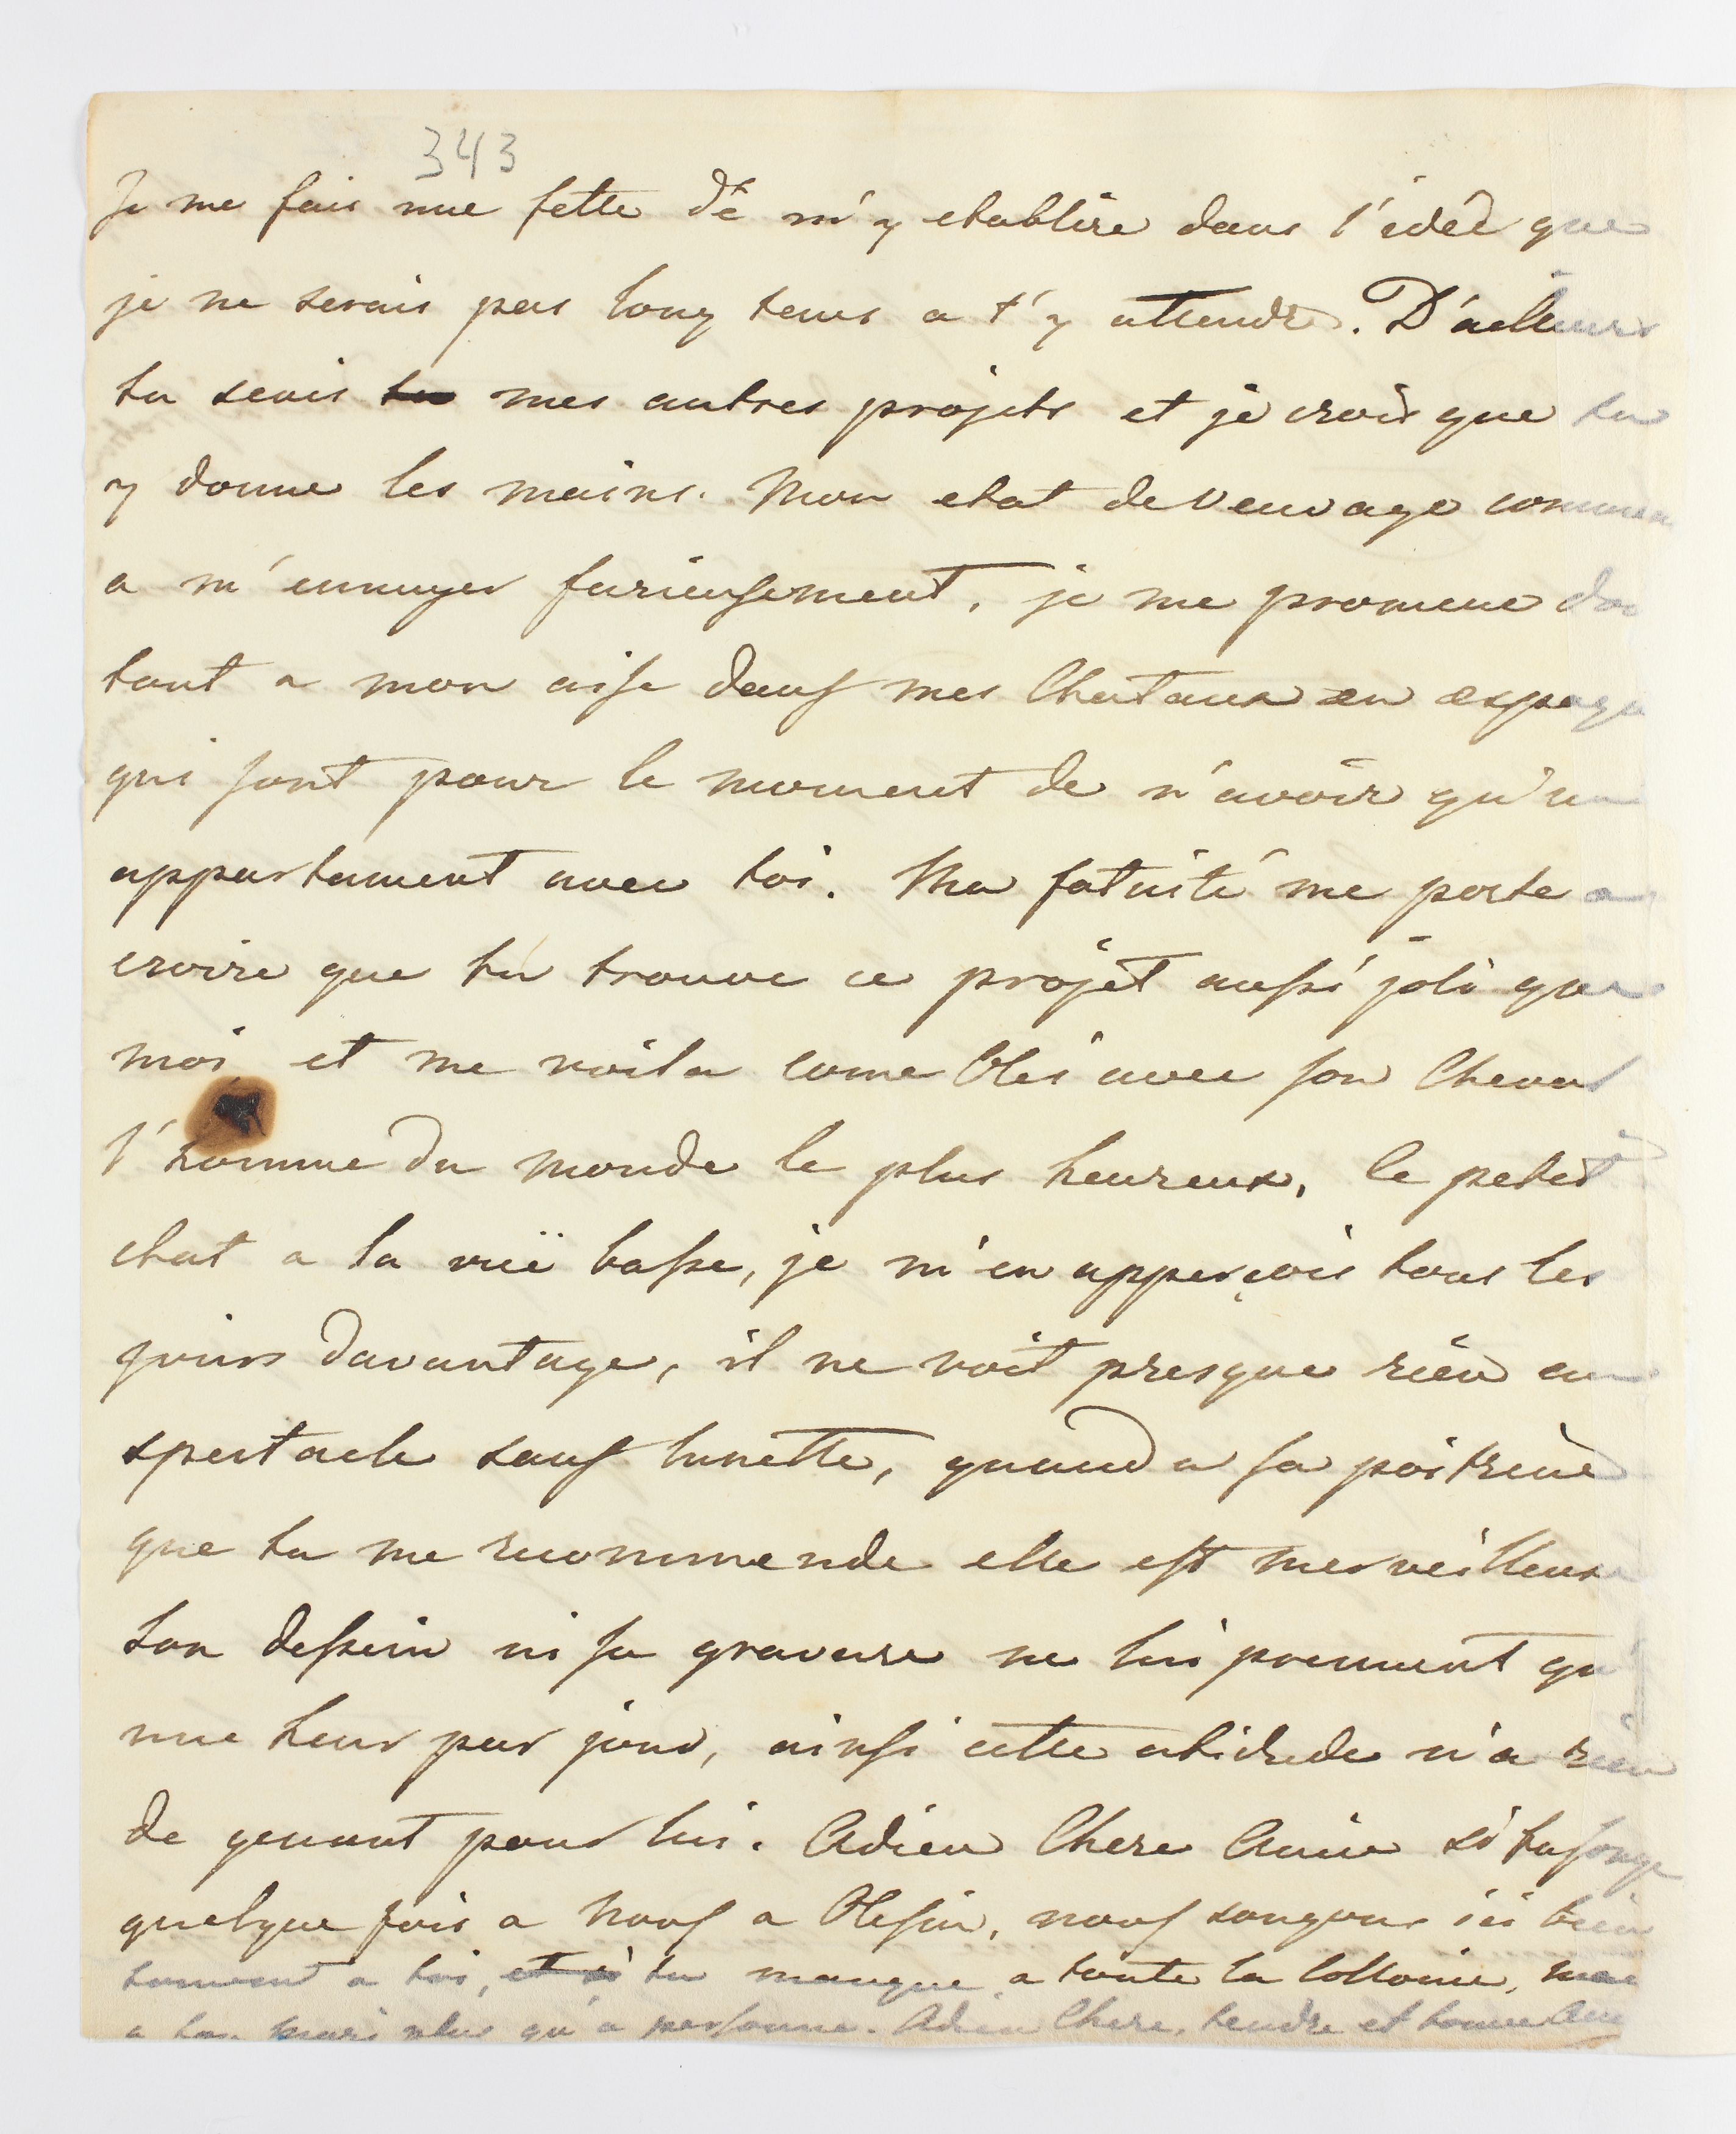 343
Je me fais une fette de m'y etablire dans l'idéé que
je ne serais pas long tems a t'y attendre. D'ailleurs
tu scais tu mes autres projets et je crois que tu
y donne les mains. Mon etat de veuvage commen
a m'ennuyer furieusement, je me promene don
tout a mon aise dans mes Chataux en espagn
qui sont pour le moment de n'avoir qu'un
appartament avec toi. Ma fatuité me porte a
croire que tu trouve ce projet aussi joli que
moi et me voila come Oles avec son Cheval
l'homme du monde le plus heureux, le petit
chat a la vuë basse, je m'en apperçois tous les
jours davantage, il ne voit presque rien au
spectacle sauf lunette, quand a sa poitrine
que tu me recommende elle est merveilleuse
son dessein ni sa gravure ne lui prennent qu'
une heur par jour, ainsi cette ne n'a rien
de genant pour lui. Adieu Chere Amie si tu songe
quelque fois a nous a Olesin, nous songons ici bien
souvent a toi, et si tu manque a toute la Collonie,
a ton mari plus qu'a personne. Adieu Chere, tendre et bonne Ami